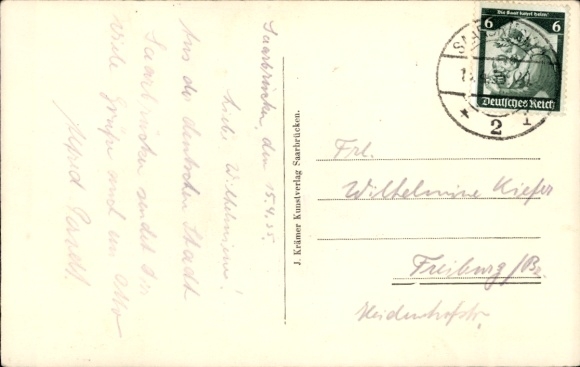 Saarbrücken, den 15.4.35.
Liebe Wilhelmine!
Aus der deutschen Stadt
Saarbrücken sendet Dir
viele Grüße und ein
Alfred
J. Krämer Kunstverlag Saarbrücken.
6 Die Saar kehrt heim! 6
Deutsches Reich
2
Frl.
Wilhelmine Kiefer
Freiburg/Br.